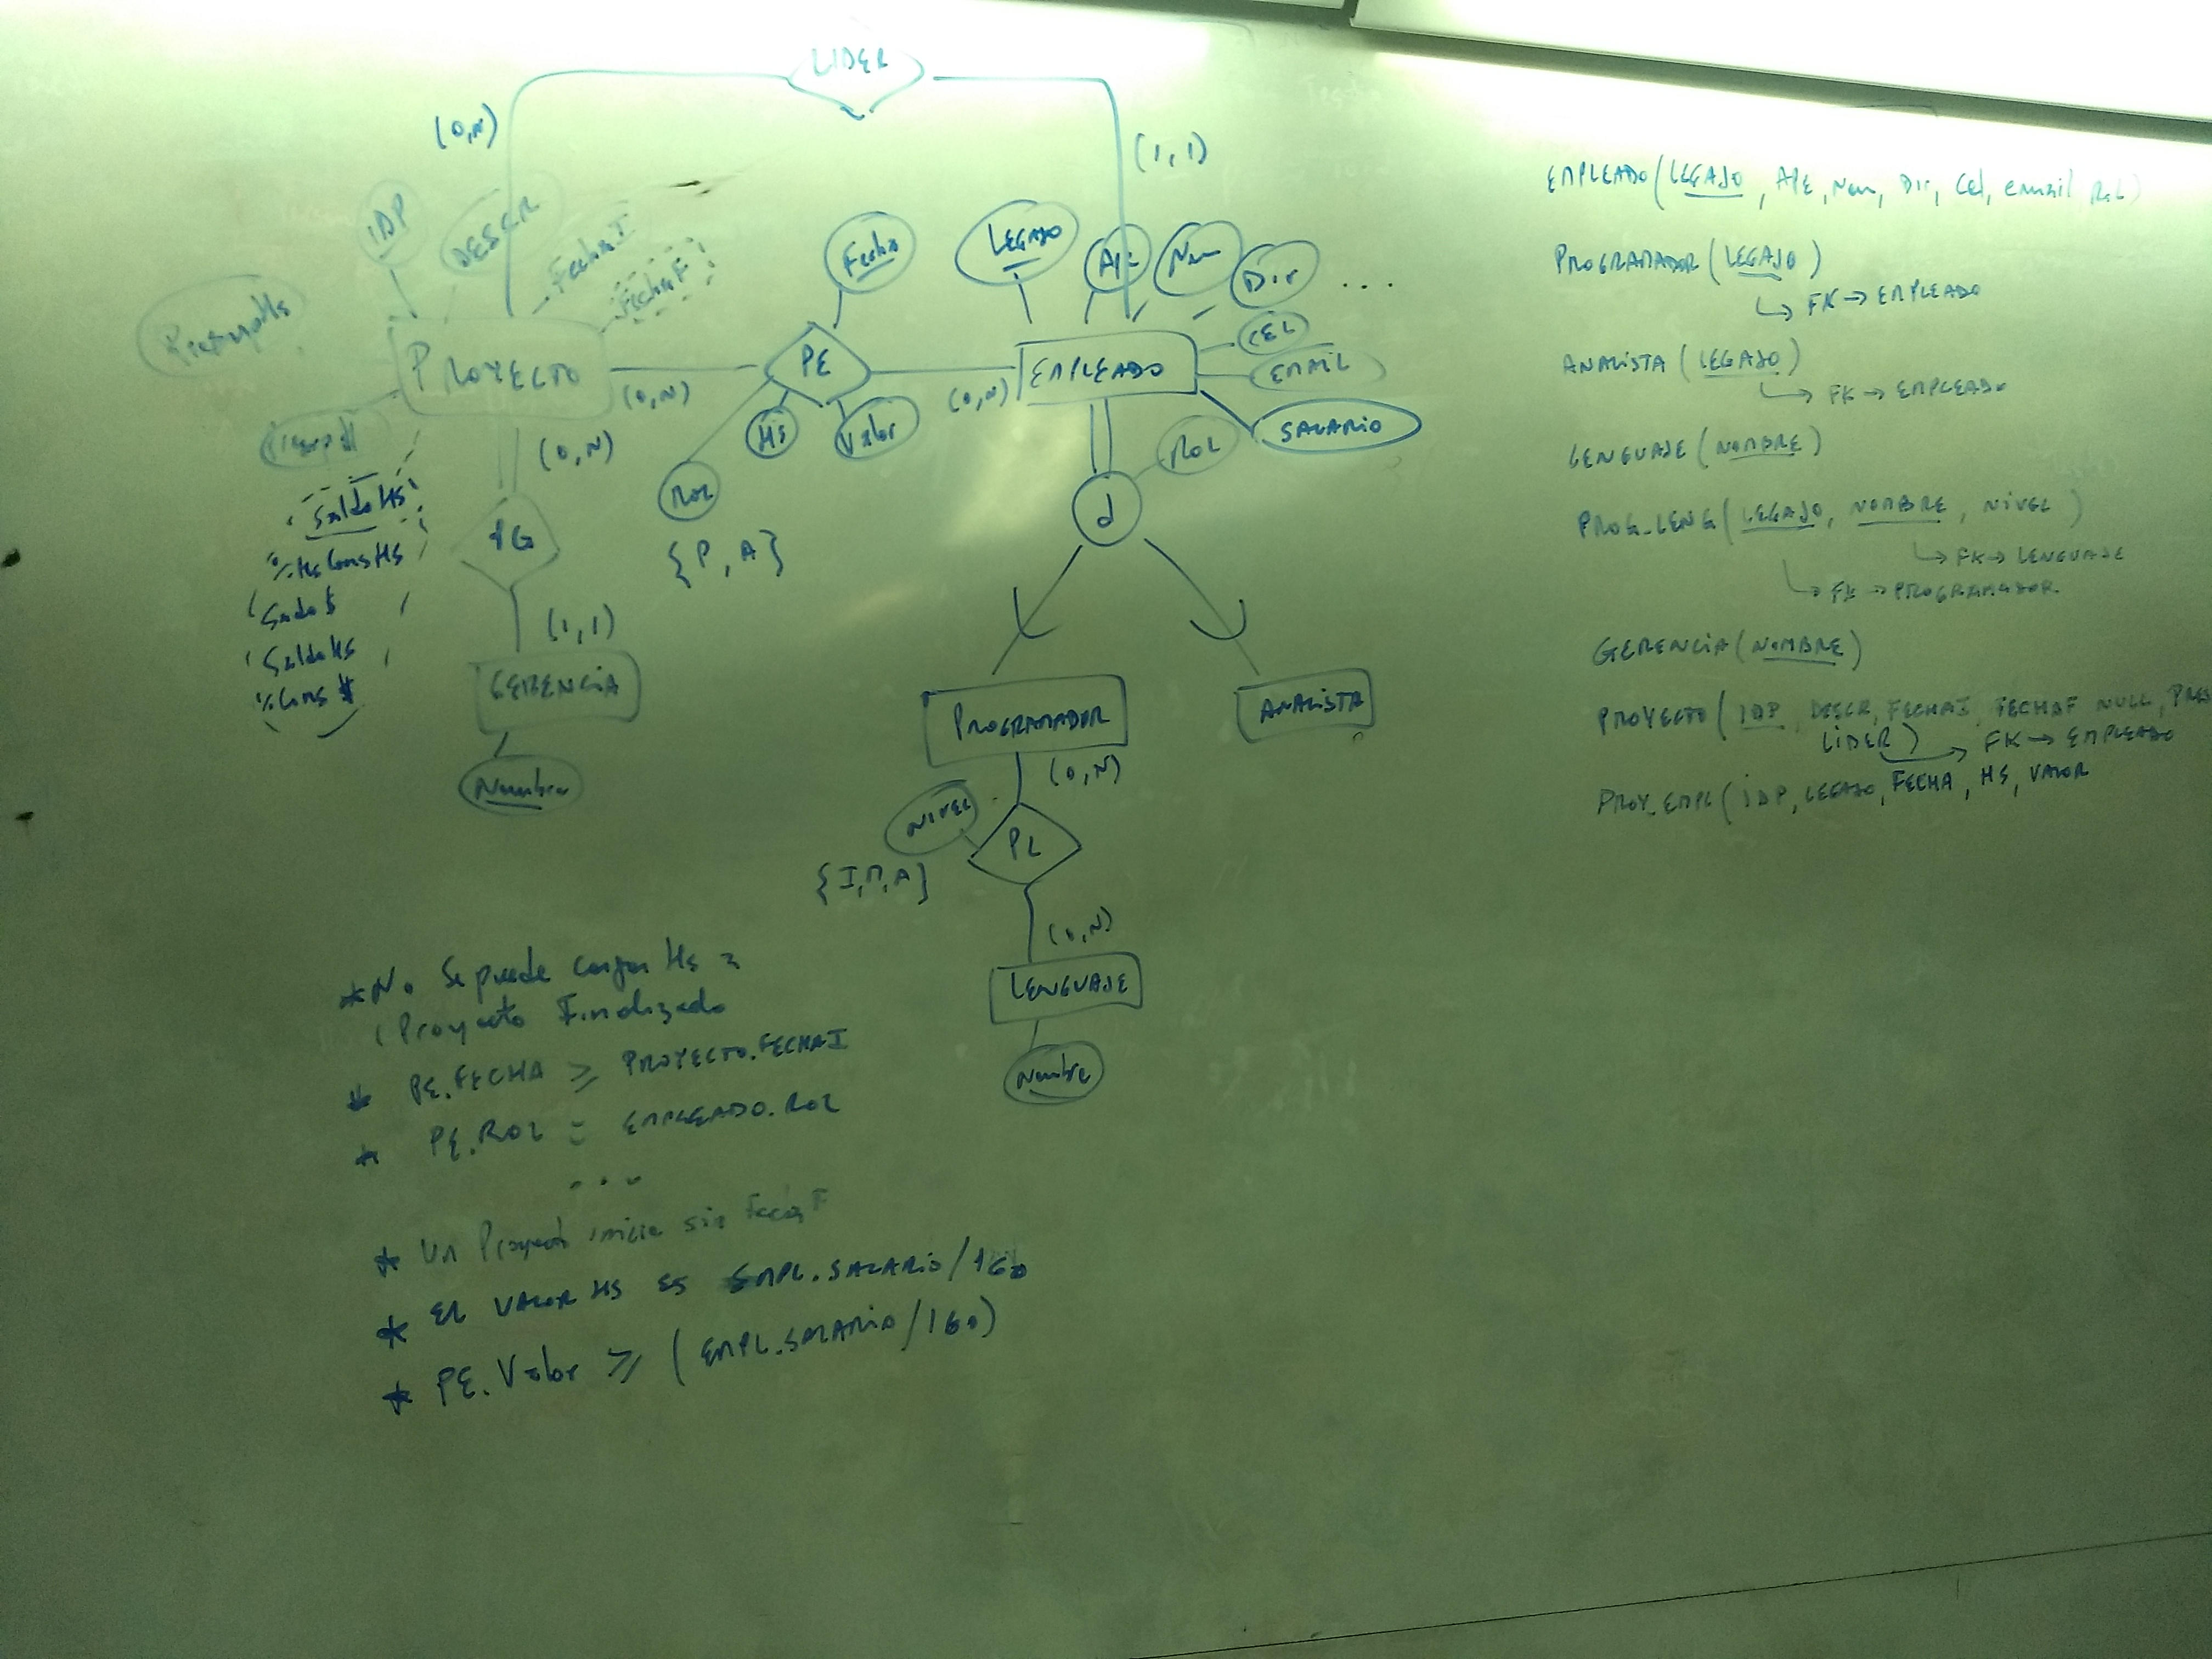 LIDER
(0,N)
(1,1)
IDP
DESCR
FechaI
FechaF
Fecha
LEGAJO
APE
Nom
Dir
...
CEL
EMAIL
SALARIO
PROYECTO
(0,N)
PE
(0,N)
EMPLEADO
HS
Valor
ROL
{P, A}
ROL
d
(0,N)
PG
(1,1)
GERENCIA
Nombre
Saldo Hs
Saldo $
Saldo Hs
% Cons $
PROGRAMADOR
ANALISTA
(0,N)
NIVEL
PL
{I,M,A}
(0,N)
LENGUAJE
Nombre
* No se puede cargar Hs a
Proyecto Finalizado
* PE.FECHA ≥ PROYECTO.FECHAI
* PE.ROL = EMPLEADO.ROL
...
* Un Proyecto inicia sin FechaF
* EL VALOR HS ES EMPL.SALARIO/160
* PE.Valor ≥ (EMPL.SALARIO/160)
EMPLEADO(LEGAJO, APE, Nom, Dir, Cel, email, Rol)
PROGRAMADOR(LEGAJO)
↳ FK → EMPLEADO
ANALISTA(LEGAJO)
↳ FK → EMPLEADO
LENGUAJE(NOMBRE)
PROG_LENG(LEGAJO, NOMBRE, NIVEL)
↳ FK → LENGUAJE
↳ FK → PROGRAMADOR
GERENCIA(NOMBRE)
PROYECTO(IDP, DESCR, FECHAI, FECHAF NULL, PRES
LIDER) → FK → EMPLEADO
PROY_EMPL(IDP, LEGAJO, FECHA, HS, VALOR